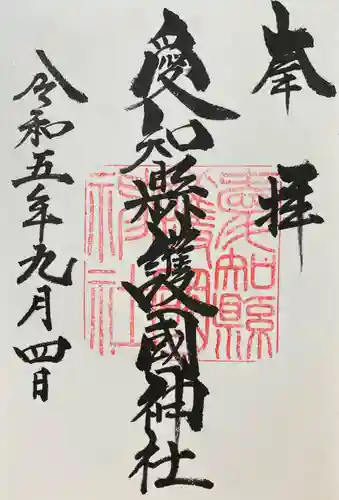 奉拝
愛知縣護國神社
令和五年九月四日
愛知縣
護國
神社